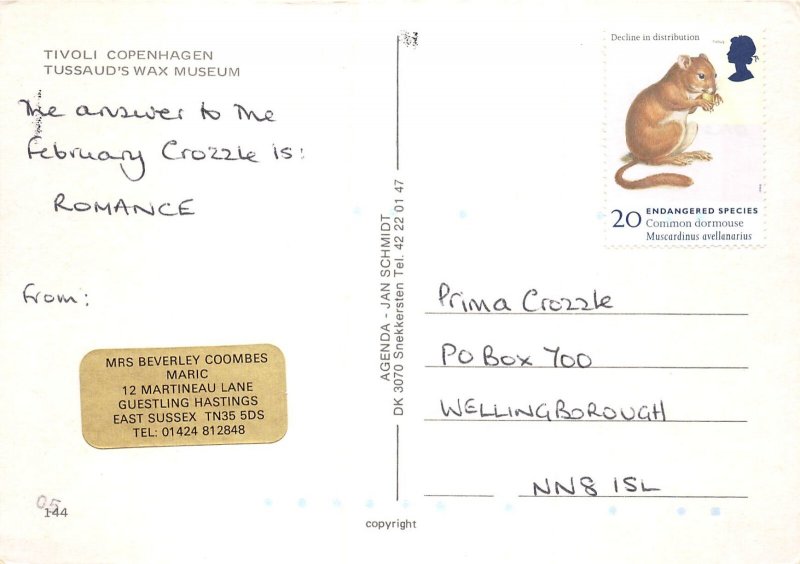 TIVOLI COPENHAGEN
TUSSAUD'S WAX MUSEUM
The answer to the
February Crozzle is:
ROMANCE
From:
MRS BEVERLEY COOMBES
MARIC
12 MARTINEAU LANE
GUESTLING HASTINGS
EAST SUSSEX TN35 5DS
TEL: 01424 812848
05
144
AGENDA - JAN SCHMIDT
DK 3070 Snekkersten Tel. 42 22 01 47
copyright
Decline in distribution
20 ENDANGERED SPECIES
Common dormouse
Muscardinus avellanarius
Prima Crozzle
PO Box 700
WELLINGBOROUGH
NN8 1SL